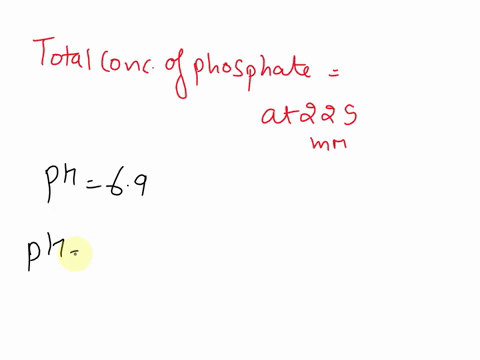 Total conc. of phosphate =
at 225
mM
pH = 6.9
pH =